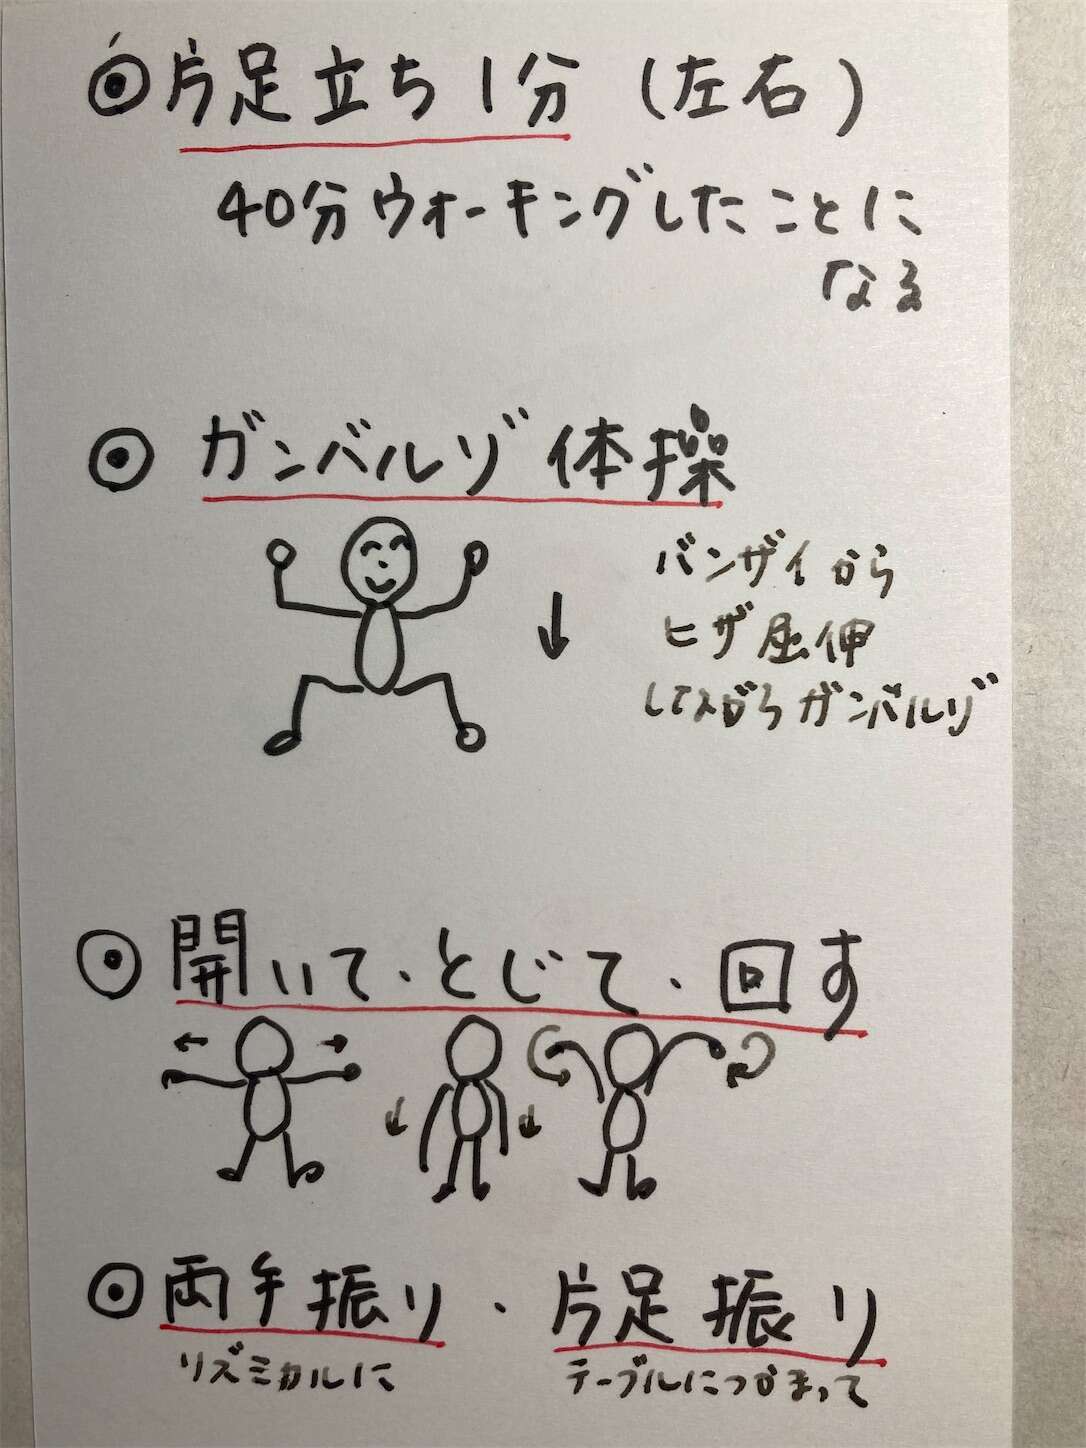 ◉片足立ち1分(左右)
40分ウォーキングしたことに
なる
◉ガンバルゾ体操
バンザイから
ヒザ屈伸
しながらガンバルゾ
◉開いて、とじて、回す
◉両手振り・片足振り
リズミカルに
テーブルにつかまって